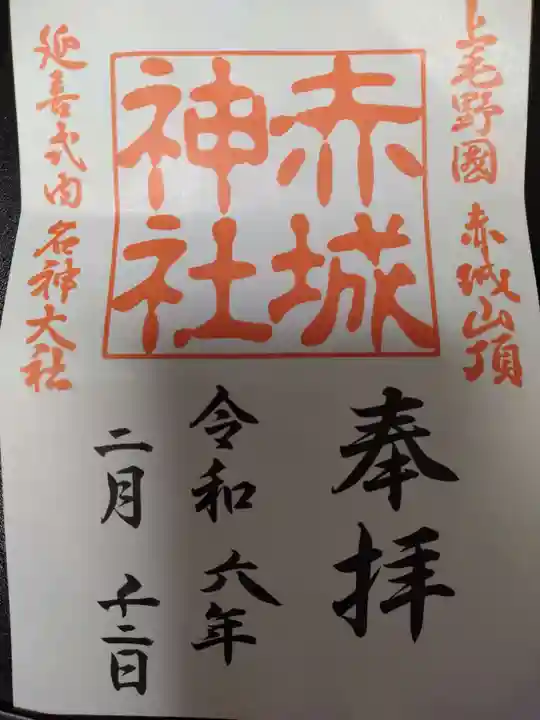 上毛野國 赤城山頂
赤城
神社
延喜式内 名神大社
奉拝
令和 六年
二月 十二日